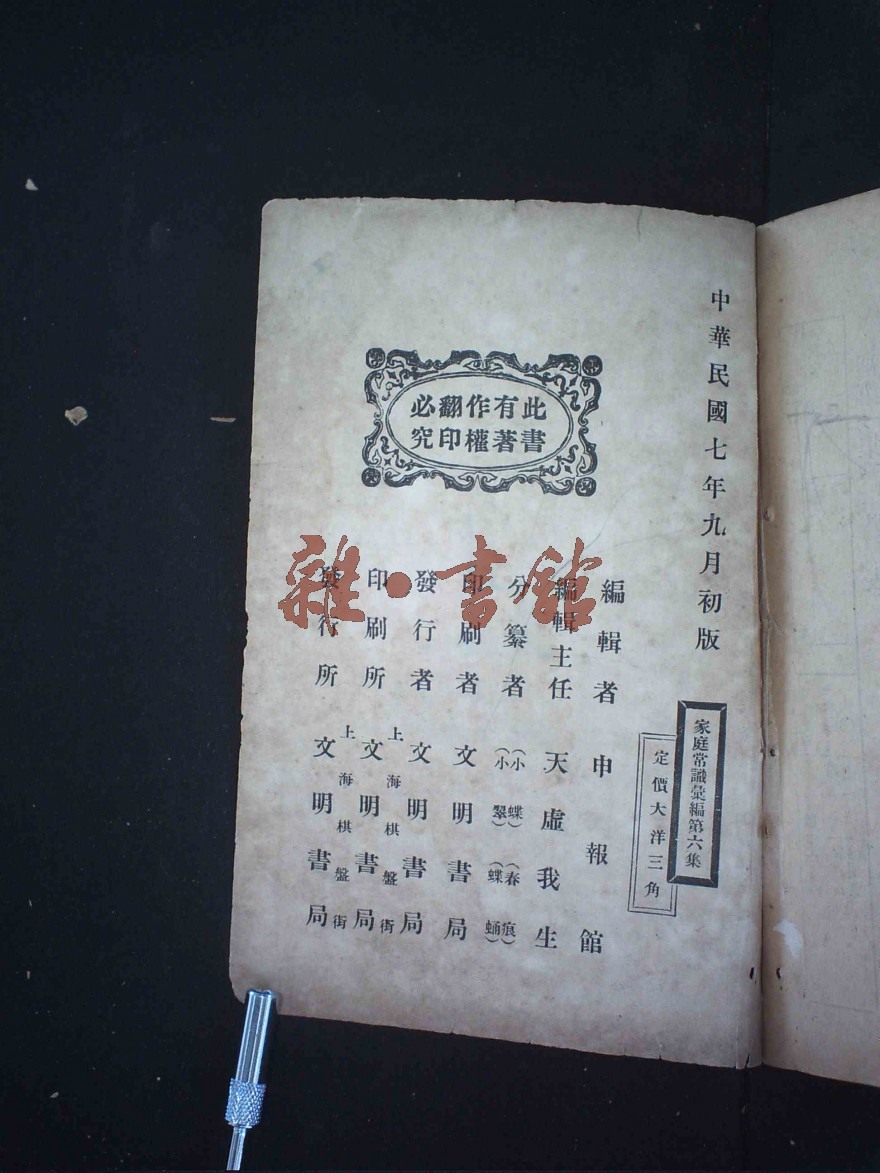 中華民國七年九月初版
家庭常識彙編第六集
定價大洋三角
此書有著作權翻印必究
編輯者 申報館
編輯主任 天虛我生
分纂者 (小蝶) (春痕)
(小翠) (蝶蛹)
印刷者 文明書局
發行者 文明書局
印刷所 上海棋盤街 文明書局
發行所 上海棋盤街 文明書局
雜·書館